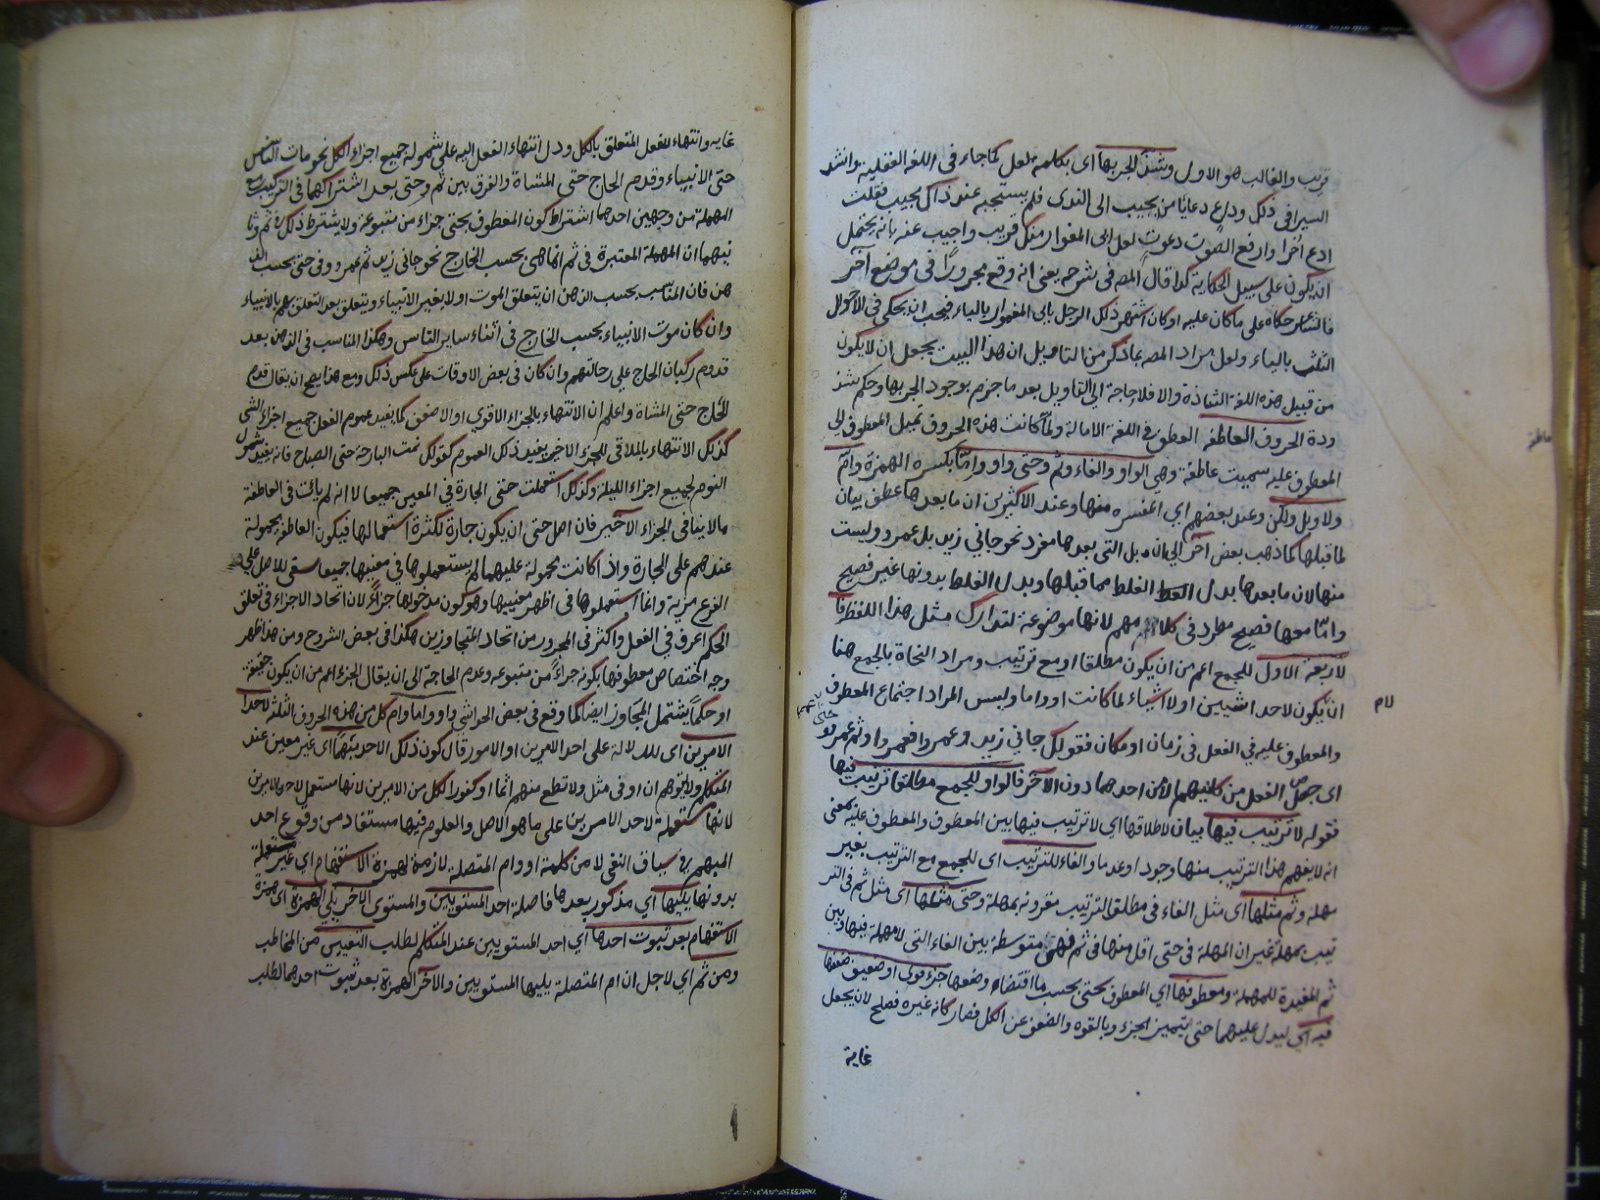 قريب والغالب هو الاول وشذ الجر بها اى بكلمة لعل كما جاء فى اللغة العقيلية وانشد
السيرافى ذلك وداع دعا يا من يجيب الى الندى فلم يستجبه عند ذاك مجيب فقلت
ادع اخرى وارفع الصوت دعوة لعل ابى المغوار منك قريب واجيب عنه بانه يحتمل
ان يكون على سبيل الحكاية كذا قال المص فى شرحه يعنى انه وقع مجرورا فى موضع آخر
فالشاعر حكاه على ما كان عليه او كان اشتهر ذلك الرجل بابى المغوار بالياء فيجب ان يحكى فى الاحوال
الثلث بالياء ولعل مراد المصه بما ذكر من التاويل ان هذا البيت يحتمل ان لا يكون
من قبيل هذه اللغة الشاذة والا فلا حاجة الى التاويل بعد ما جزم بوجود الجر بها وحكم بشذ
وذة الحروف العاطفة العطف فى اللغة الامالة ولما كانت هذه الحروف تميل المعطوف الى
المعطوف عليه سميت عاطفة وهى الواو والفاء وثم وحتى واو واما بكسر الهمزة وام
ولا وبل ولكن وعند بعضهم اى المفسرة منها وعند الاكثرين ان ما بعدها عطف بيان
لما قبلها كما ذهب بعض آخر الى ان بل التى بعدها مفرد نحو جانى زيد بل عمرو وليست
منها لان ما بعدها بدل الغلط مما قبلها وبدل الغلط بدونها غير فصيح
واما معها فصيح مطرد فى كلامهم لانها موضوعة لتدارك مثل هذا اللفظ فا
لاربعة الاول للجمع اعم من ان يكون مطلقا او مع ترتيب ومراد النحاة بالجمع هنا
ان يكون لاحد الشيئين او لاشياء لما كانت او واما وليس المراد اجتماع المعطوف
لام
والمعطوف عليه فى الفعل فى زمان او مكان فقولك جانى زيد وعمرو او فعمرو او ثم عمرو
اى حصل الفعل من كليهما لا من احدهما دون الآخر فالواو للجمع مطلقا لا ترتيب فيها
فقوله لا ترتيب فيها بيان لاطلاقها اى لا ترتيب فيها بين المعطوف والمعطوف عليه بمعنى
انه لا يفهم هذا الترتيب منها وجودا وعدما والفاء للترتيب اى للجمع مع الترتيب بغير
مهلة وثم مثلها اى مثل الفاء فى مطلق الترتيب مقرونة بمهلة وحتى مثلها اى مثل ثم فى التر
تيب بمهلة غير ان المهلة فى حتى اقل منها فى ثم فهى متوسطة بين الفاء التى لا مهلة فيها وبين
ثم المفيدة للمهلة ومعطوفها اى المعطوف بحتى بحسب ما اقتضاه وضعها جزء قوى او ضعيف
فيه اى ليدل عليهما حتى يتميز الجزء بالقوة والضعف عن الكل فصار كانه غيره فصلح لان يجعل
غاية
غاية وانتهاء للفعل المتعلق بالكل ودل انتهاء الفعل اليه على شموله جميع اجزاء الكل نحو مات الناس
حتى الانبياء وقدم الحاج حتى المشاة والفرق بين ثم وحتى بعد اشتراكهما فى الترتيب مع
المهملة من وجهين احدهما اشتراط كون المعطوف بحتى جزء من متبوعه ولا يشترط ذلك فى ثم وثا
نيهما ان المهملة المعتبرة فى ثم انما هى بحسب الخارج نحو جانى زيد ثم عمرو وفى حتى بحسب الذ
هن فان المناسب بحسب الذهن ان يتعلق الموت اولا بغير الانبياء ويتعلق بعد التعلق بهم بالانبياء
وان كان موت الانبياء بحسب الخارج فى اثناء ساير الناس وهكذا المناسب فى الذهن بعد
قدوم ركبان الحاج على رجالتهم وان كان فى بعض الاوقات على عكس ذلك ومع هذا يصح ان يقال قدم
الحاج حتى المشاة واعلم ان الانتهاء بالجزء الاقوى او الاضعف كما يفيد عموم الفعل جميع اجزاء الشى
كذلك الانتهاء بالملاقى للجزء الاخير يفيد ذلك العموم كقولك نمت البارحة حتى الصباح فانه يفيد شمول
النوم لجميع اجزاء الليلة وكذلك استعملت حتى الجارة فى المعنيين جميعا لا انه لم يأت فى العاطفة
ما لا ينافى الجزء الآخير فان اصل حتى ان يكون جارة لكثرة استعمالها فيكون العاطفة محمولة
عندهم على الجارة واذا كانت محمولة عليها لم يستعملوها فى معنيها جميعا سقى للاصل على
الفرع مزية وانما استعملوها فى اظهر معنييها وهو كون مدخولها جزءً لان اتحاد الاجزاء فى تعلق
الحكم اعرف فى الفعل واكثر فى المجرور من اتحاد المتجاوزين هكذا فى بعض الشروح ومن هذا ظهر
وجه اختصاص معطوفها بكونه جزاءً من متبوعه وعدم الحاجة الى ان يقال الجزء اعم من ان يكون حقيقة
او حكما يشتمل المجاوز ايضا كما وقع فى بعض الحواشى واو واما وام كل من هذه الحروف الثلثة لاحد
الامرين اى للدلالة على احد الامرين او الامور قال كون ذلك الاحد مبهما اى غير معين عند
المتكلم ولا يتوهم ان او فى مثل ولا تطع منهم اثما او كفورا لكل من الامرين لانها مستعمل لاحد الامرين
لانها مستعملة لاحد الامرين على ما هو الاصل والعلوم فيها مستفاد من وقوع احد
المبهم فى سياق النفى لا من كلمة او وام المتصلة لازمة لهمزة الاستفهام اى غير مستعملة
بدونها يليها اى مذكور بعدها فاصلة احد المستويين والمستوى الآخر يلى الهمزة اى همزة
الاستفهام بعد ثبوت احدهما اى احد المستويين عند المتكلم لطلب التعيين من المخاطب
ومن ثم اى لاجل ان ام المتصلة يليها المستويين والآخر الهمزة بعد ثبوت احدهما لطلب